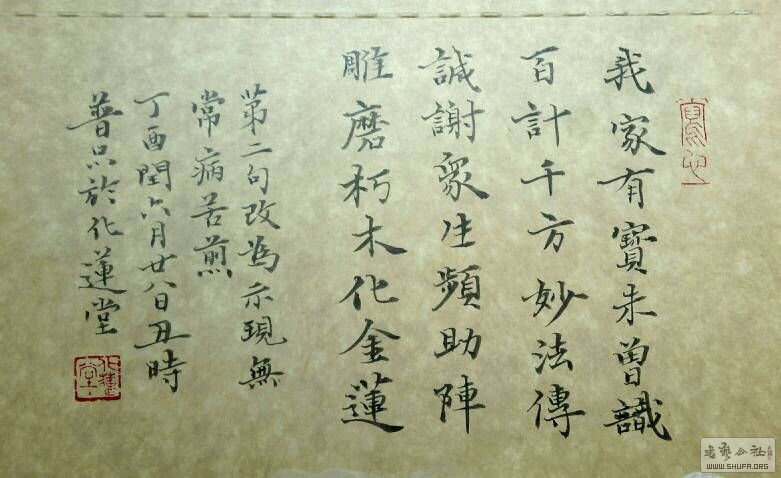 我家有寶未曾識
百計千方妙法傳
誠謝眾生頻助陣
雕磨朽木化金蓮
第二句改為示現無
常病苦煎
丁酉閏六月廿八日丑時
普只於化蓮堂
化蓮堂
書藝公社
WWW.SHUFA.ORG